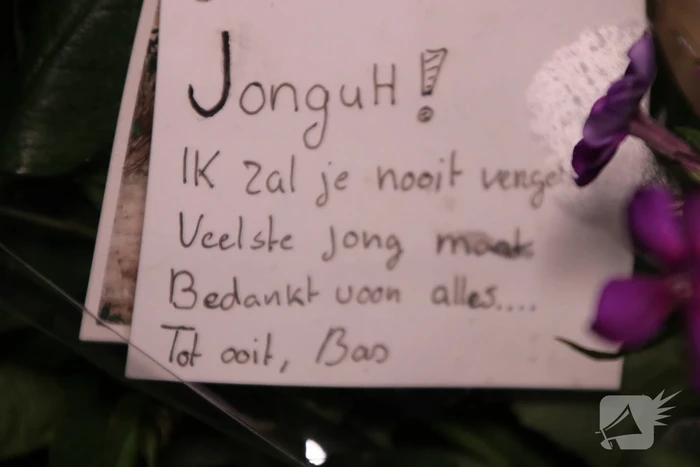 JonguH!
IK zal je nooit verge
Veelste jong maak
Bedankt voor alles....
Tot ooit, Bas